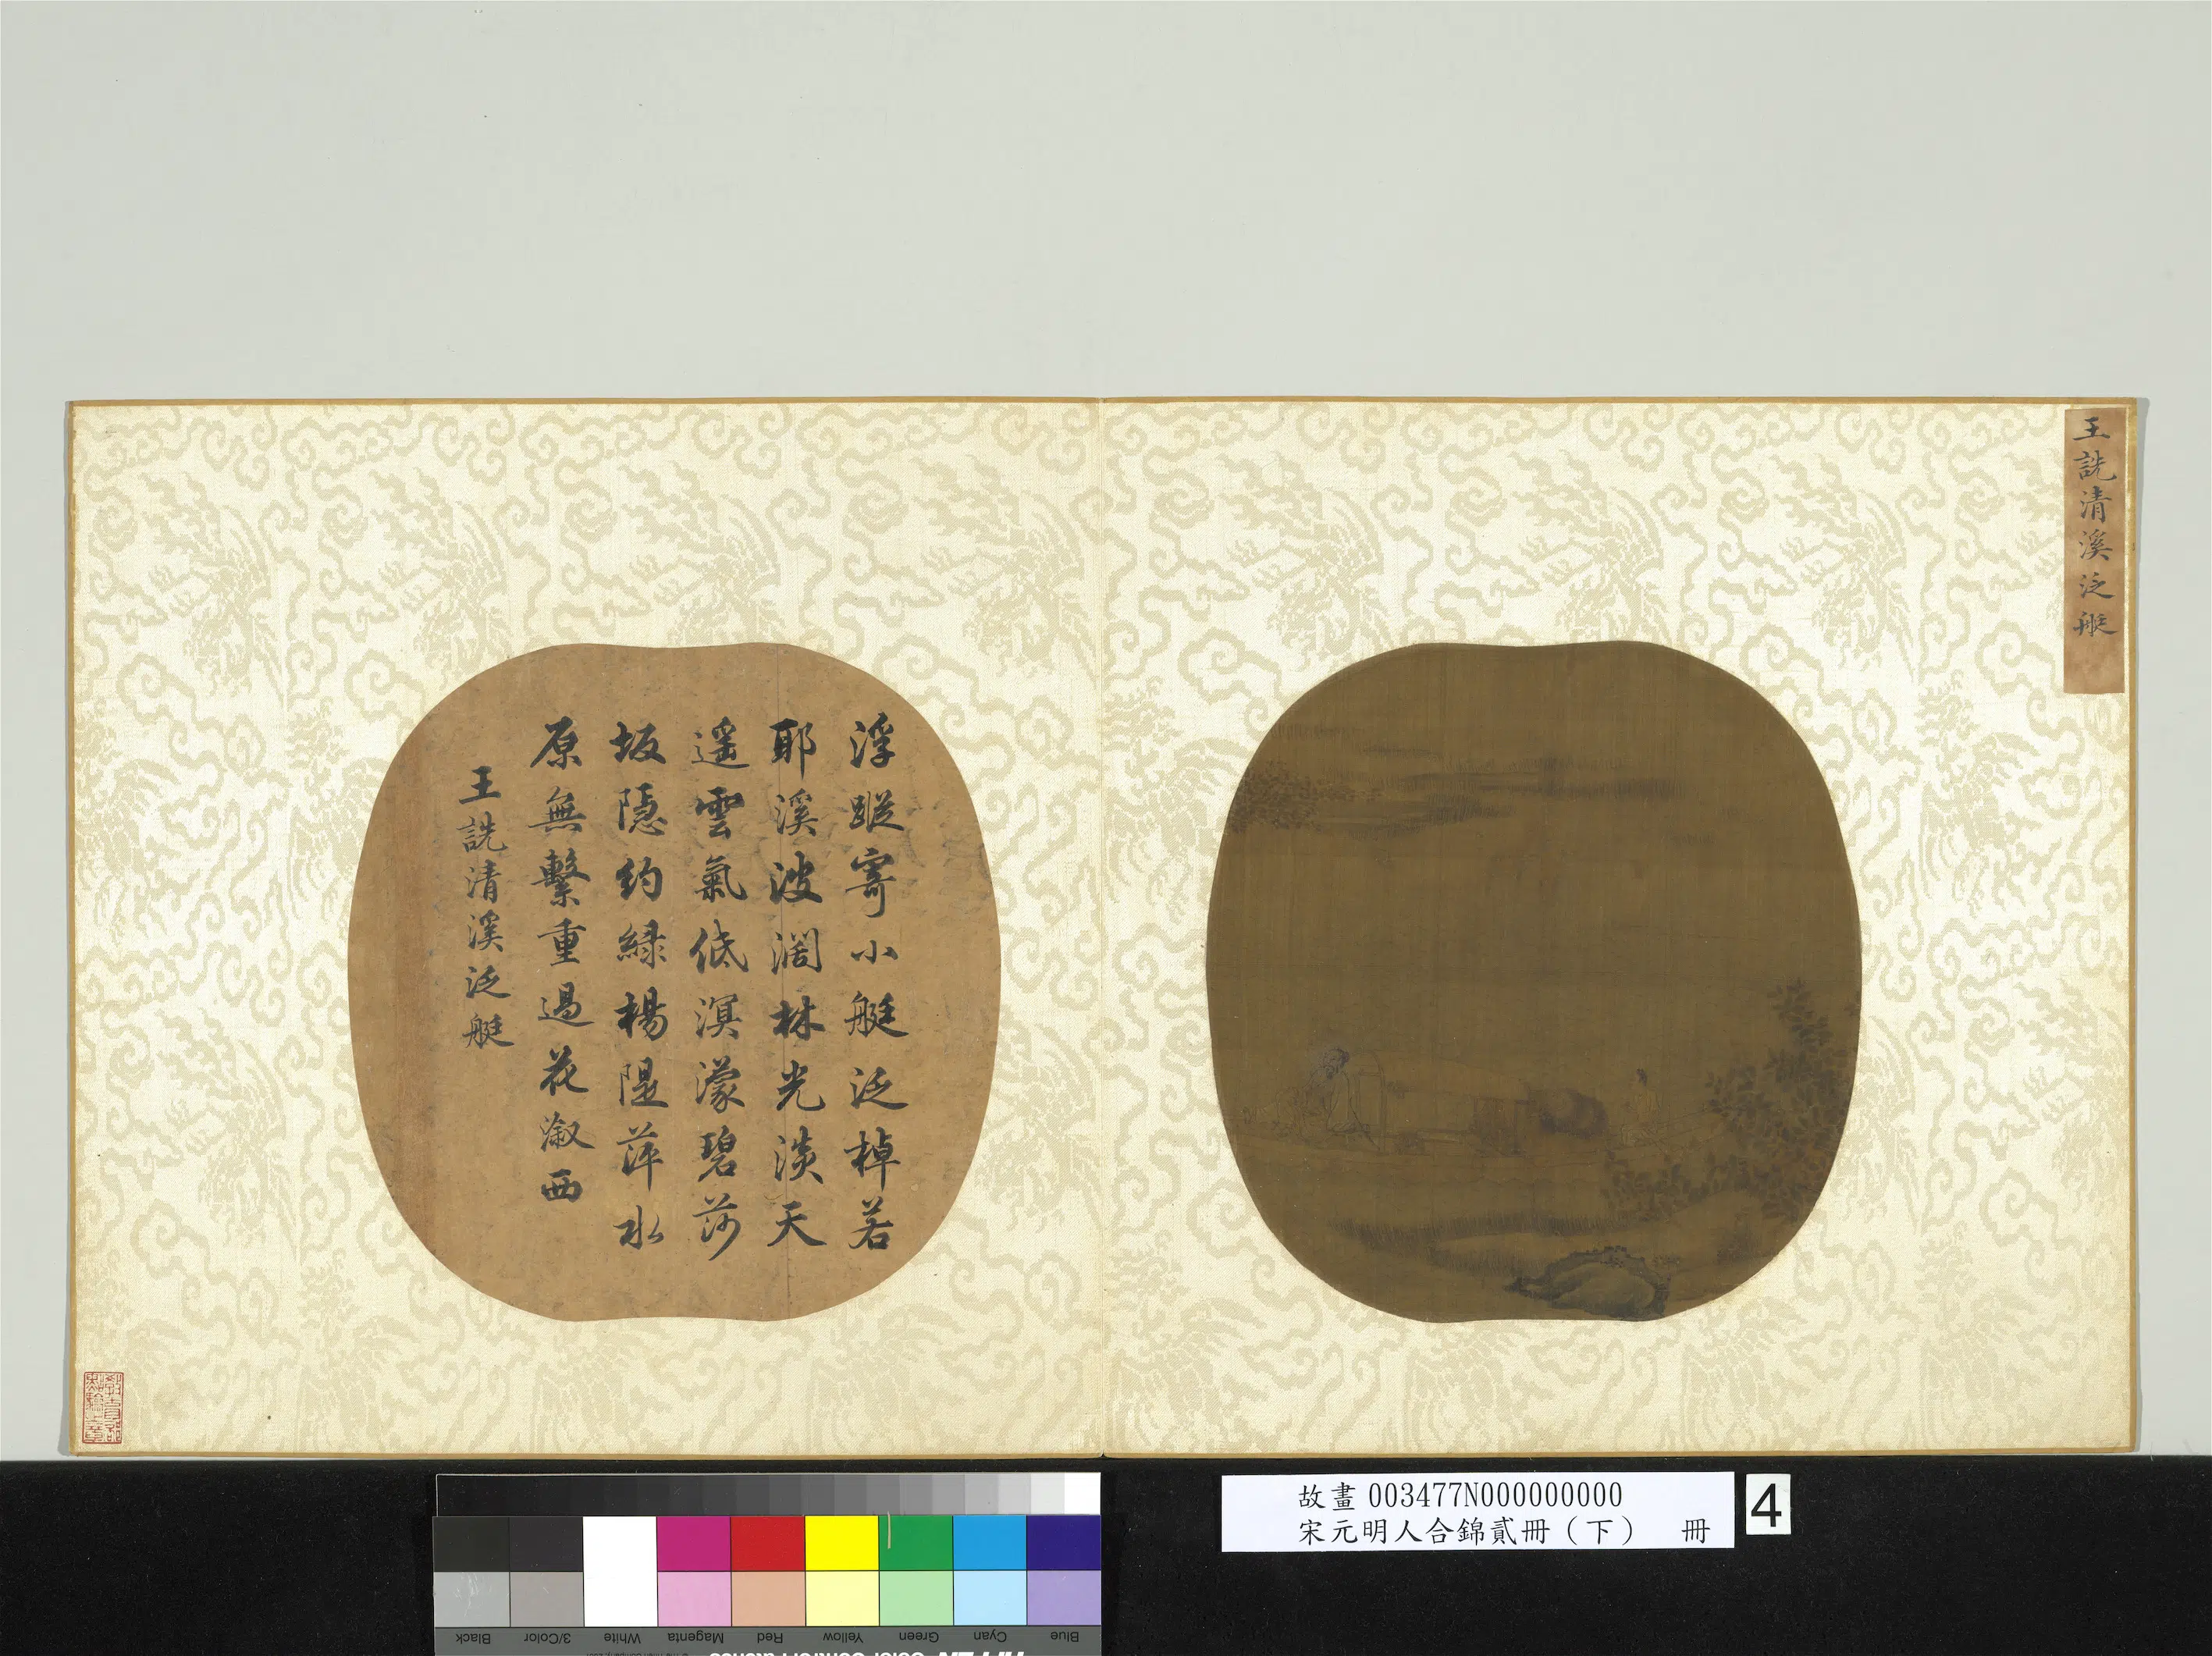 王詵清溪泛艇
浮蹤寄小艇泛棹若
耶溪波濶林光淡天
遥雲氣低溟濛碧莎
坂隱約綠楊隄萍水
原無繫重過花漵西
王詵清溪泛艇
故畫 003477N000000000
宋元明人合錦貳冊（下） 冊
4
Black
3/Color
White
Magenta
Red
Yellow
Green
Cyan
Blue